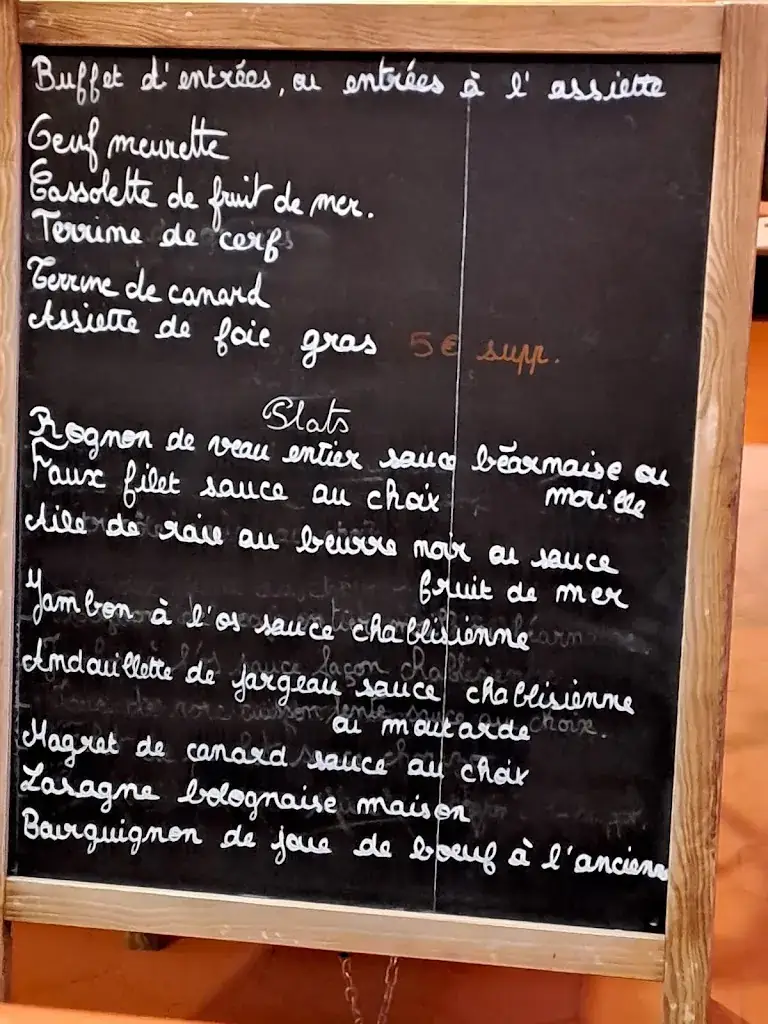 Buffet d'entrées, ou entrées à l'assiette
Oeuf meurette
Cassolette de fruit de mer.
Terrine de cerf
Terrine de canard
Assiette de foie gras 5€ supp.
Plats
Rognon de veau entier sauce béarnaise ou
morille
Faux filet sauce au choix
Aile de raie au beurre noir ou sauce
fruit de mer
Jambon à l'os sauce chablisienne
Andouillette de jargeau sauce chablisienne
ou moutarde
Magret de canard sauce au choix
Lasagne bolognaise maison
Bourguignon de joue de boeuf à l'ancienne